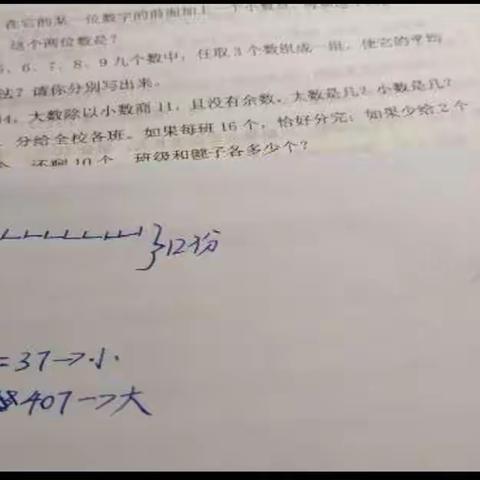 在它的某一位数字的前面加上一个小数点,
这个两位数是?
、6、7、8、9九个数中,任取3个数组成一组,使它的平均
法?请你分别写出来。
4,大数除以小数商11,且没有余数。大数是几?小数是几?
分给全校各班。如果每班16个,恰好分完;如果少给2个
还剩10个 班级和毽子各多少个?
}12份
=37→小
407→大